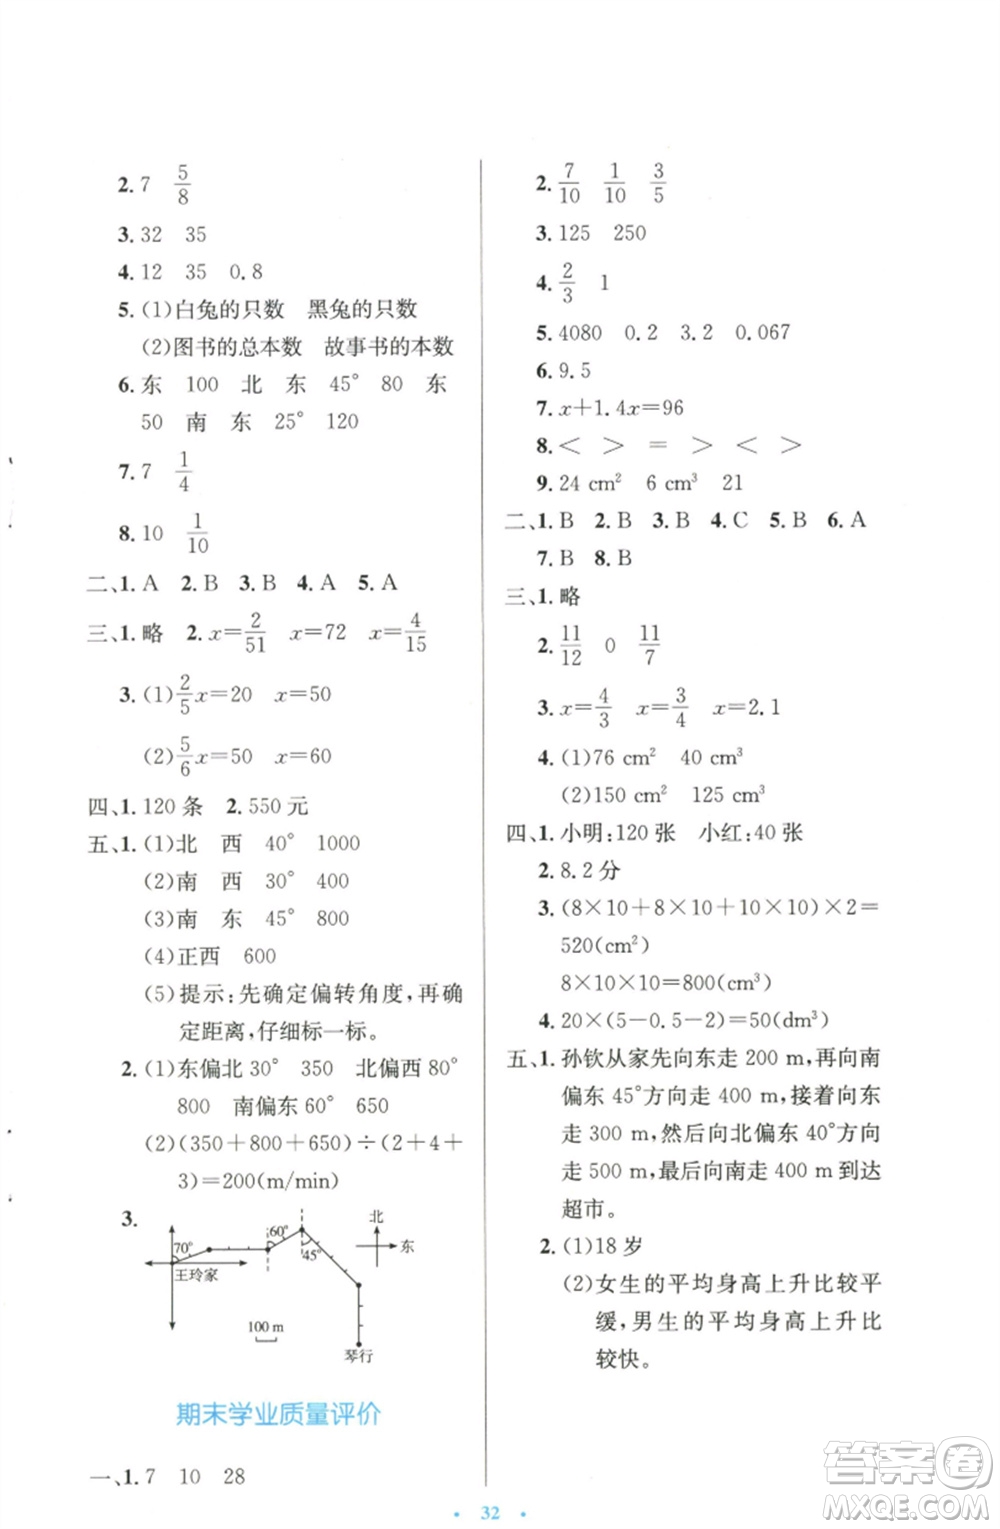 2. 7  5/8
3. 32  35
4. 12  35  0.8
5. (1)白兔的只数  黑兔的只数
(2)图书的总本数  故事书的本数
6. 东  100  北  东  45°  80  东
50  南  东  25°  120
7. 7  1/4
8. 10  1/10
二、1. A  2. B  3. B  4. A  5. A
三、1. 略  2. x=2/51  x=72  x=4/15
3. (1) 2/5x=20  x=50
(2) 5/6x=50  x=60
四、1. 120 条  2. 550 元
五、1. (1)北  西  40°  1000
(2)南  西  30°  400
(3)南  东  45°  800
(4)正西  600
(5)提示:先确定偏转角度,再确
定距离,仔细标一标。
2. (1)东偏北30°  350  正东
800  南偏东60°  650
(2)(350+800+650)÷(2+4+
3)=200(m/min)
3.
70°  60°  45°  北  东
王玲家
100 m
琴行
期末学业质量评价
一、1. 7  10  28
2. 7/10  1/10  3/5
3. 125  250
4. 2/3  1
5. 4080  0.2  3.2  0.067
6. 9.5
7. x+1.4x=96
8. <  >  =  >  <  >
9. 24 cm²  6 cm³  21
二、1. B  2. B  3. B  4. C  5. B  6. A
7. B  8. B
三、1. 略
2. 11/12  0  11/7
3. x=4/3  x=3/4  x=2.1
4. (1)76 cm²  40 cm³
(2)150 cm²  125 cm³
四、1. 小明:120 张  小红:40 张
2. 8.2 分
3. (8×10+8×10+10×10)×2=
520(cm²)
8×10×10=800(cm³)
4. 20×(5-0.5-2)=50(dm³)
五、1. 孙钦从家先向东走 200 m,再向南
偏东 45°方向走 400 m,接着向东
走 300 m,然后向北偏东 40°方向
走 500 m,最后向南走 400 m 到达
超市。
2. (1)18 岁
(2)女生的平均身高上升比较平
缓,男生的平均身高上升比
较快。
答案圈
MXQE.COM
32